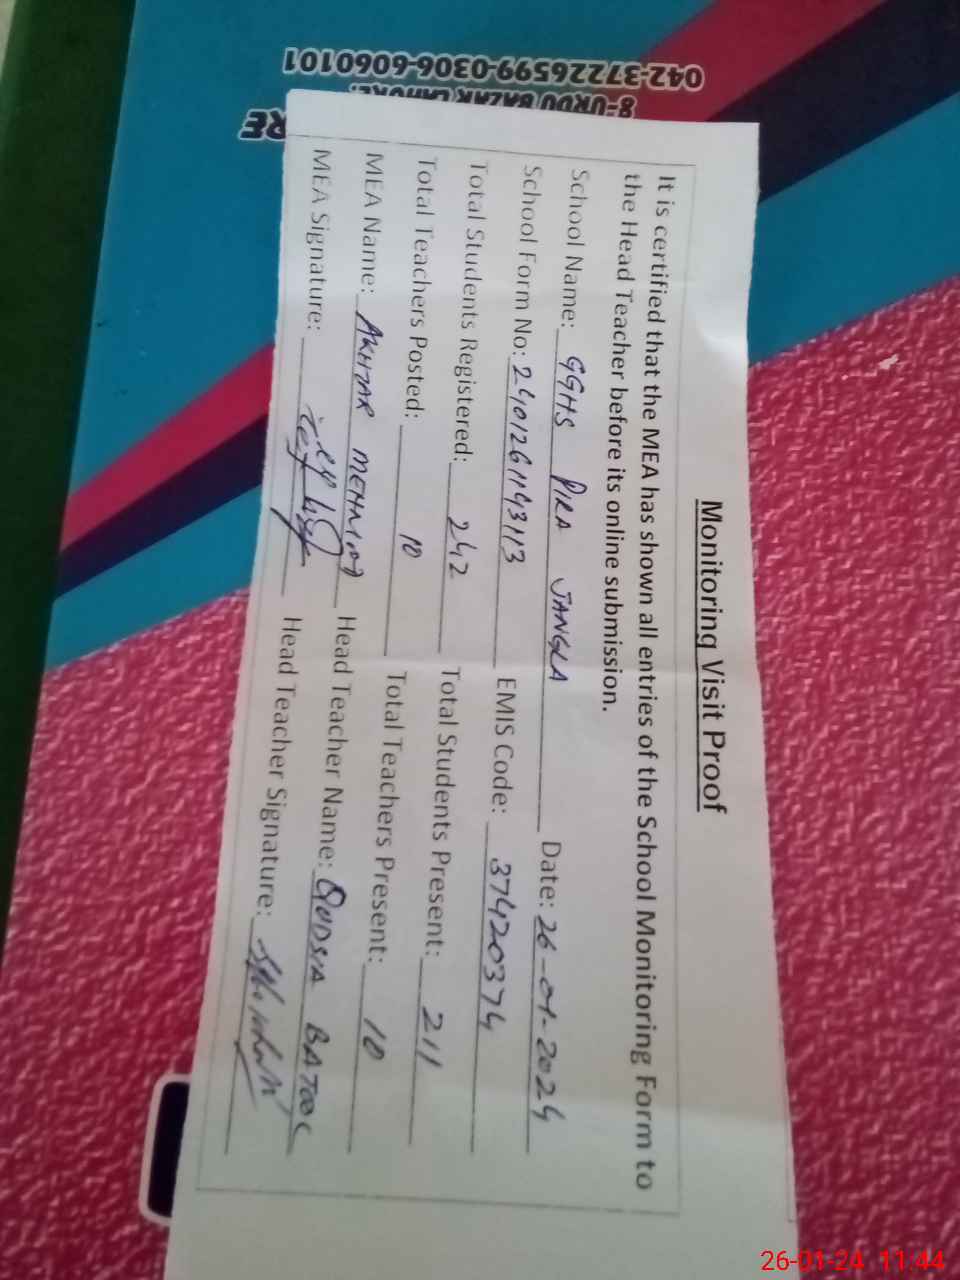 Monitoring Visit Proof
It is certified that the MEA has shown all entries of the School Monitoring Form to
the Head Teacher before its online submission.
School Name: GGHS DIRA JANGLA Date: 26-01-2024
School Form No: 2401261143113 EMIS Code: 37420374
Total Students Registered: 242 Total Students Present: 211
Total Teachers Posted: 10 Total Teachers Present: 10
MEA Name: AKHTAR MEHMOOD Head Teacher Name: QUDSIA BATOOL
MEA Signature: Head Teacher Signature:
RE
8-URDU BAZAR LAHORE.
042-37226599-0306-6060101
26-01-24 11:44